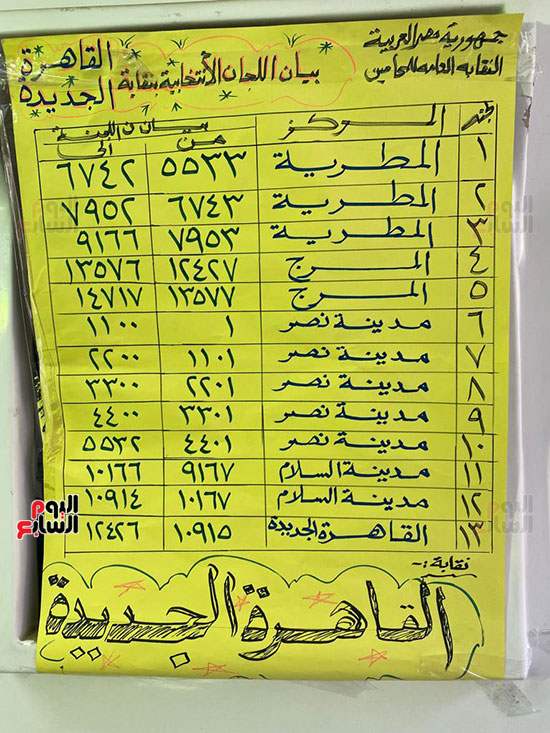 جمهورية مصر العربية
النقابة العامة للمحامين
بيان اللجان الانتخابية بنقابة القاهرة الجديدة
المركز
بيان اللجنة
من الى
١ المطرية ٥٥٣٣ ٦٧٤٢
٢ المطرية ٦٧٤٣ ٧٩٥٢
٣ المطرية ٧٩٥٣ ٩١٦٦
٤ المرج ١٢٤٢٧ ١٣٥٧٦
٥ المرج ١٣٥٧٧ ١٤٧١٧
٦ مدينة نصر ١ ١١٠٠
٧ مدينة نصر ١١٠١ ٢٢٠٠
٨ مدينة نصر ٢٢٠١ ٣٣٠٠
٩ مدينة نصر ٣٣٠١ ٤٤٠٠
١٠ مدينة نصر ٤٤٠١ ٥٥٣٢
١١ مدينة السلام ٩١٦٧ ١٠١٦٦
١٢ مدينة السلام ١٠١٦٧ ١٠٩١٤
١٣ القاهرة الجديدة ١٠٩١٥ ١٢٤٢٦
نقابة :-
القاهرة الجديدة
اليوم السابع